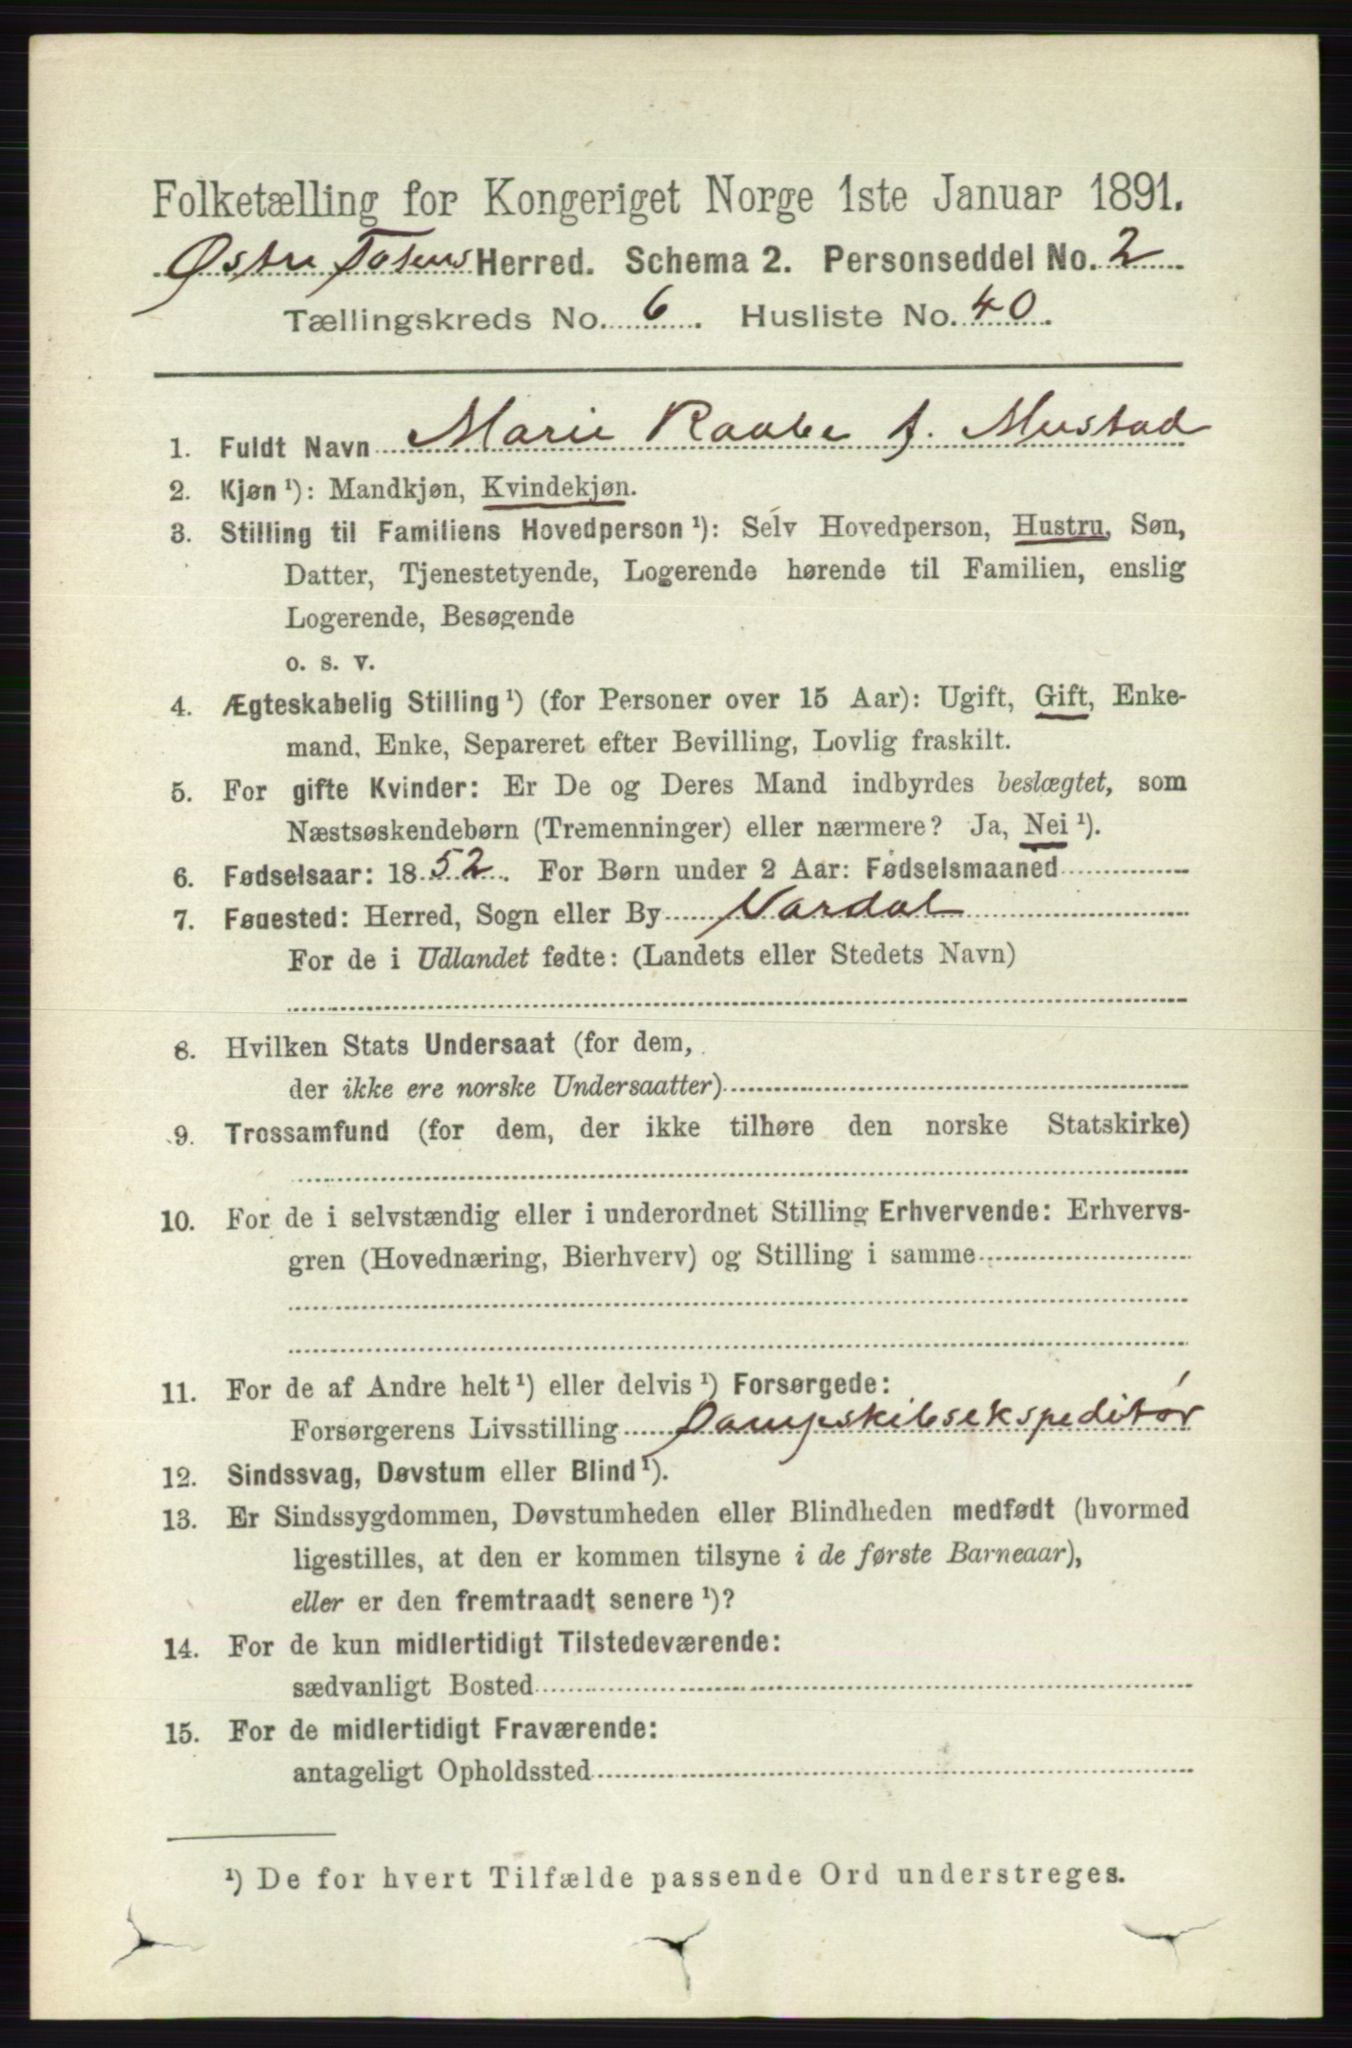 Folketælling for Kongeriget Norge 1ste Januar 1891.
Østre Totens Herred. Schema 2. Personseddel No. 2
Tællingskreds No. 6. Husliste No. 40.
1. Fuldt Navn Marie Raabe f. Mustad
2. Kjøn ¹): Mandkjøn, Kvindekjøn.
3. Stilling til Familiens Hovedperson ¹): Selv Hovedperson, Hustru, Søn,
Datter, Tjenestetyende, Logerende hørende til Familien, enslig
Logerende, Besøgende
o. s. v.
4. Ægteskabelig Stilling ¹) (for Personer over 15 Aar): Ugift, Gift, Enke-
mand, Enke, Separeret efter Bevilling, Lovlig fraskilt.
5. For gifte Kvinder: Er De og Deres Mand indbyrdes beslægtet, som
Næstsøskendebørn (Tremenninger) eller nærmere? Ja, Nei ¹).
6. Fødselsaar: 1852. For Børn under 2 Aar: Fødselsmaaned
7. Fødested: Herred, Sogn eller By Vardal
For de i Udlandet fødte: (Landets eller Stedets Navn)
8. Hvilken Stats Undersaat (for dem,
der ikke ere norske Undersaatter)
9. Trossamfund (for dem, der ikke tilhøre den norske Statskirke)
10. For de i selvstændig eller i underordnet Stilling Erhvervende: Erhvervs-
gren (Hovednæring, Bierhverv) og Stilling i samme
11. For de af Andre helt ¹) eller delvis ¹) Forsørgede:
Forsørgerens Livsstilling Dampskibsekspeditør
12. Sindssvag, Døvstum eller Blind ¹).
13. Er Sindssygdommen, Døvstumheden eller Blindheden medfødt (hvormed
ligestilles, at den er kommen tilsyne i de første Barneaar),
eller er den fremtraadt senere ¹)?
14. For de kun midlertidigt Tilstedeværende:
sædvanligt Bosted
15. For de midlertidigt Fraværende:
antageligt Opholdssted
¹) De for hvert Tilfælde passende Ord understreges.